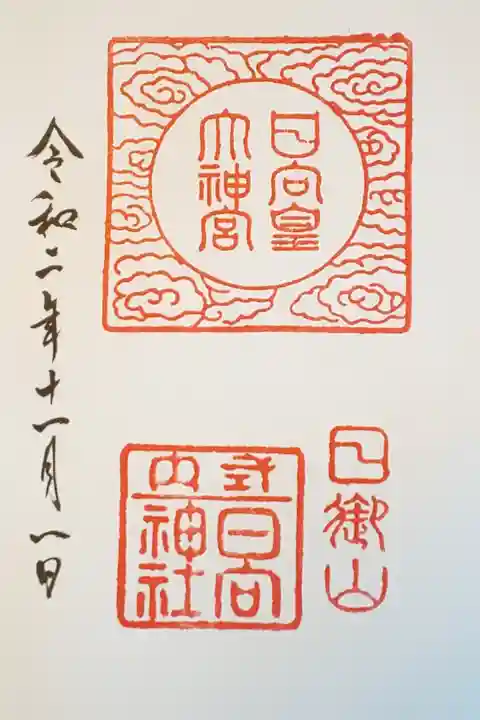 日向皇
大神宮
日御山
式内
日向
神社
令和二年十一月一日